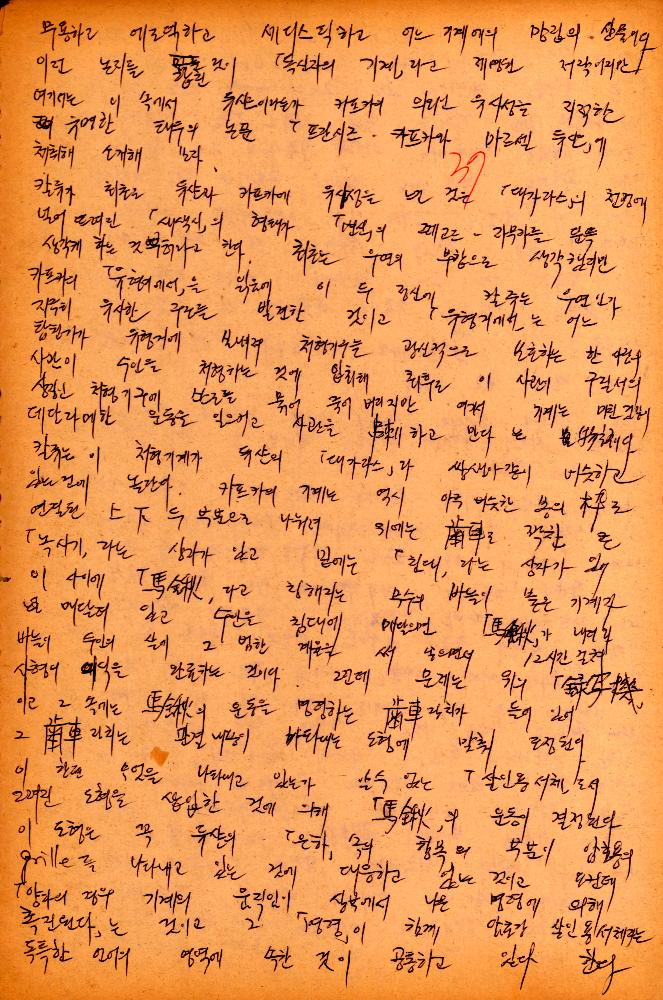 무용하고 에로틱하고 세디스틱하고 어느 기계에의 망집의 산물이다
이런 논지를 것이 「독신자의 기계」라고 제명한 저작이지만
여기서는 이 속에서 뒤샹 카프카의 의외의 유사성을 지적한
유명한 논문 「프란시즈·카프카와 마르셀 뒤샹」에
소개해 보자
39
칼쥬가 최초로 뒤샹과 카프카에 유사성을 느낀 것은 「대가라스」의 천정에
「새색시」의 형태가 「변신」의 그레고르·잠자를 문득
생각케 하는 것 한다. 최초는 우연의 부합으로 생각
카프카의 「유형지에서」를 읽음에 이 두 정신에 칼쥬는 우연인가
지극히 유사한 구조를 발견한 것이고 「유형지에서」는 어느
탐험가가 유형지에 보내져 처형기구를 광신적으로 한 사람의
사관이 수인을 처형하는 것에 입회해 최후로 이 사관이 구질서의
처형기구에 스스로를 묶어 죽어 버리지만 기계는
운동을 일으키고 사관을 하고 만다는
칼쥬는 이 처형기계가 뒤샹의 「대가라스」와 쌍생아같이 비슷하고
있는 것에 놀란다. 카프카의 기계는 역시 아주 비슷한 봉의 枠로
연결된 上下 두 부분으로 나뉘어 위에는 齒車로 꽉찬 큰
「녹사기」라는 상자가 있고 밑에는 「침대」라는 상자가 있어
이 사이에 「馬鍬」라고 칭해지는 무수의 바늘이 붙은 기계가
매달려 있고 수인을 침대에 매달으면 「馬鍬」가 내려와
바늘이 수인의 살에 그 범한 계율을 써 넣으면서 12시간 걸쳐
사형의 완료하는 것이다. 그런데 문제는 위의 「錄写機」
이고 그 속에는 馬鍬의 운동을 명령하는 齒車장치가 들어 있어
그 齒車장치는 판결내용이 나타내는 도형에 맞춰 조정되어
이 한편 무엇을 나타내고 있는가 알수 없는 「살인용서체」로써
그려진 도형을 삽입한 것에 의해 「馬鍬」의 운동이 결정된다
이 도형은 꼭 뒤샹의 「은하」속의 항목의 부분이 암호용의
grille를 나타내고 있는 것에 대응하고 있는 것이고 또한데
「양자의 경우 기계의 움직임이 상부에서 나온 명령에 의해
촉진된다」는 것이고 그 「명령」이 함께 암호란 살인용서체라는
독특한 언어의 영역에 속한 것이 공통하고 있다 한다